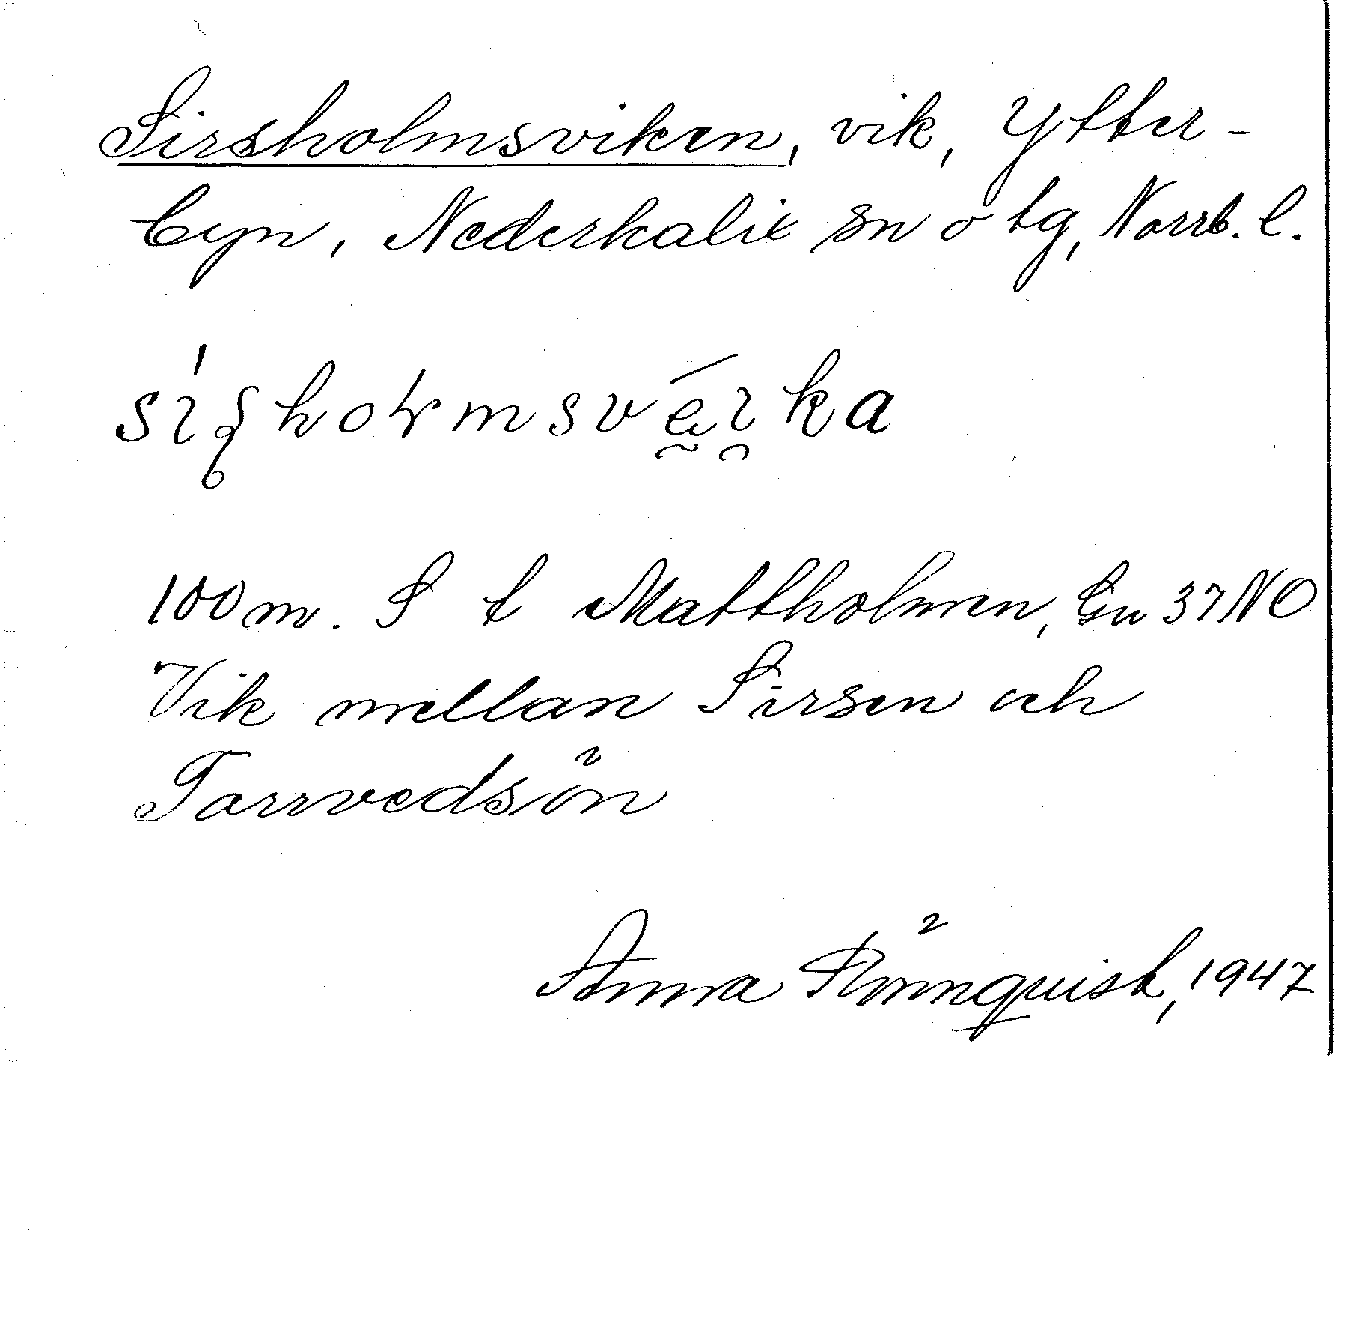 Sirsholmsviken, vik, Ytter-
byn, Nederkalix sn o tg, Norrb. l.
100 m. S t Mattholmen, Gu 37 NO
Vik mellan Sirsen och
Torrvedsön
Anna Rönnquist, 1947